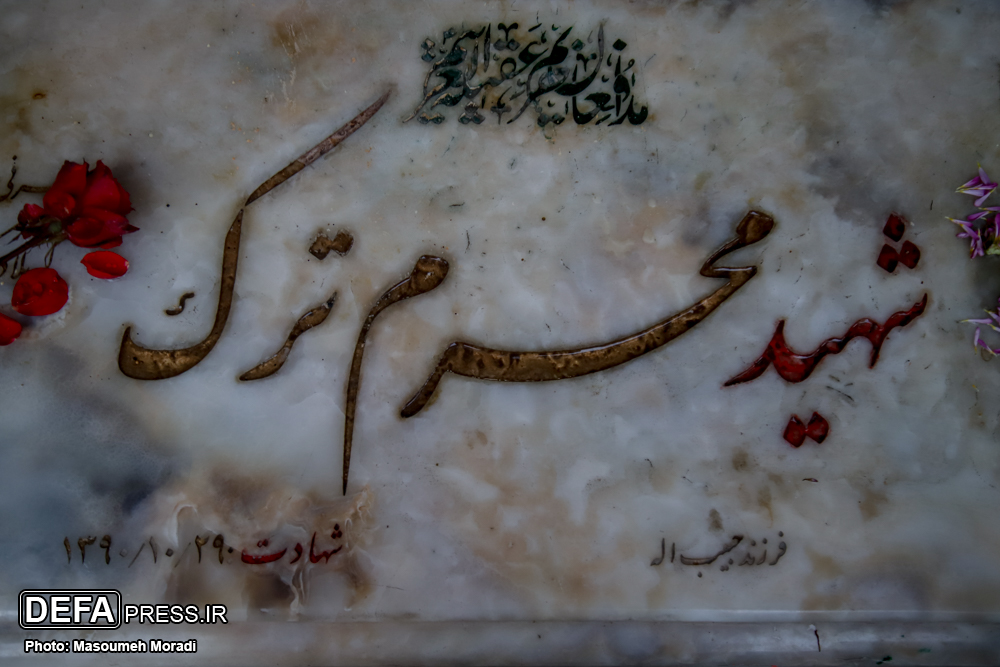 مدافعان حریم عقیلة العرب
شهید محرم ترک
فرزند حبیب اله
شهادت ۱۳۹۰/۱۰/۲۹
DEFAPRESS.IR
Photo: Masoumeh Moradi